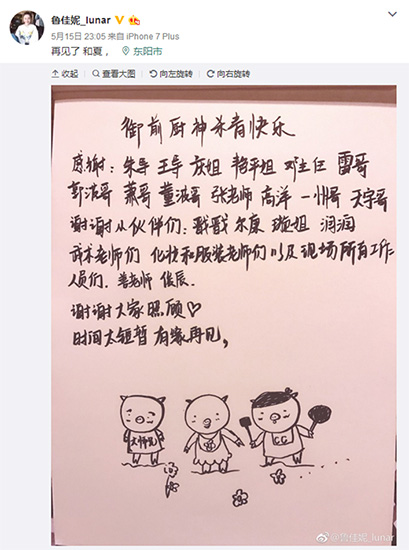 鲁佳妮_lunar
5月15日 23:05 来自 iPhone 7 Plus
再见了 和夏, 东阳市
收起 查看大图 向左旋转 向右旋转
御前厨神杀青快乐
感谢: 朱导 王导 灰姐 艳平姐 邓主任 雷哥
彭波哥 萧哥 董波哥 张老师 高洋 一帅哥 天宇哥
谢谢小伙伴们: 戬戬 尔康 璇姐 润润
武术老师们 化妆和服装老师们 以及现场所有工作
人员们. 姜老师 侯辰.
谢谢大家照顾♡
时间太短暂 有缘再见,
大师兄
CC
@鲁佳妮_lunar